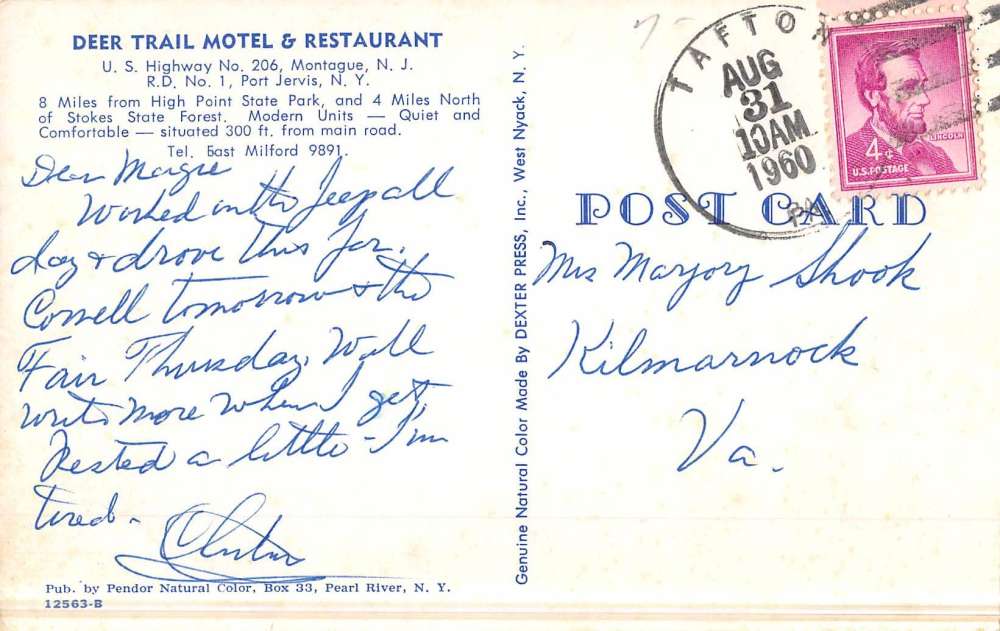 DEER TRAIL MOTEL & RESTAURANT
U. S. Highway No. 206, Montague, N. J.
R.D. No. 1, Port Jervis, N. Y.
8 Miles from High Point State Park, and 4 Miles North
of Stokes State Forest. Modern Units — Quiet and
Comfortable — situated 300 ft. from main road.
Tel. East Milford 9891.
Dear Margie
Worked on the Jeep all
day & drove this far.
Cornell tomorrow & the
Fair Thursday. Will
write more when I get
rested a little - I'm
tired -
Pub. by Pendor Natural Color, Box 33, Pearl River, N. Y.
12563-B
Genuine Natural Color Made By DEXTER PRESS, Inc., West Nyack, N. Y.
TAFTON
AUG
31
10AM
1960
PA
LINCOLN
4¢
U.S. POSTAGE
POST CARD
Mrs Marjory Shook
Kilmarnock
Va.